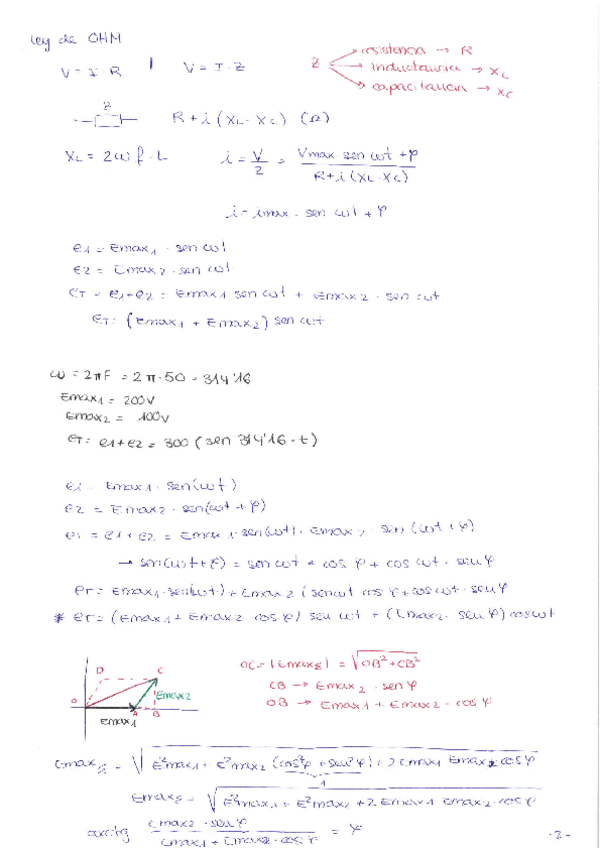 Ley de OHM
V = I · R | V = I · Z
Z → resistencia → R
→ inductancia → XL
→ capacitancia → XC
Z
R + i (XL - XC) (Ω)
XL = 2ω f · L i = V/Z = Vmax sen ωt + φ / R + i (XL - XC)
i = imax · sen ωt + φ
e1 = Emax1 · sen ωt
e2 = Emax2 · sen ωt
eT = e1 + e2 = Emax1 sen ωt + Emax2 · sen ωt
eT = (Emax1 + Emax2) sen ωt
ω = 2πf = 2π · 50 = 314'16
Emax1 = 200V
Emax2 = 100V
eT = e1 + e2 = 300 (sen 314'16 · t)
e1 = Emax1 · sen(ωt)
e2 = Emax2 · sen(ωt + φ)
eT = e1 + e2 = Emax1 · sen(ωt) · Emax2 · sen (ωt + φ)
→ sen(ωt + φ) = sen ωt · cos φ + cos ωt · sen φ
eT = Emax1 · sen(ωt) + Emax2 (sen ωt cos φ + cos ωt · sen φ
* eT = (Emax1 + Emax2 cos φ) sen ωt + (Emax2 · sen φ) cos ωt
D C
O A B
Emax2
Emax1
OC = |Emaxs| = √OB² + CB²
CB → Emax2 · sen φ
OB → Emax1 + Emax2 · cos φ
Emaxs = √E²max1 + E²max2 (cos²φ + sen²φ) + 2 Emax1 Emax2 cos φ
1
Emaxs = √E²max1 + E²max2 + 2 Emax1 Emax2 · cos φ
arctg Emax2 · sen φ / Emax1 + Emax2 · cos φ = φ
-2-